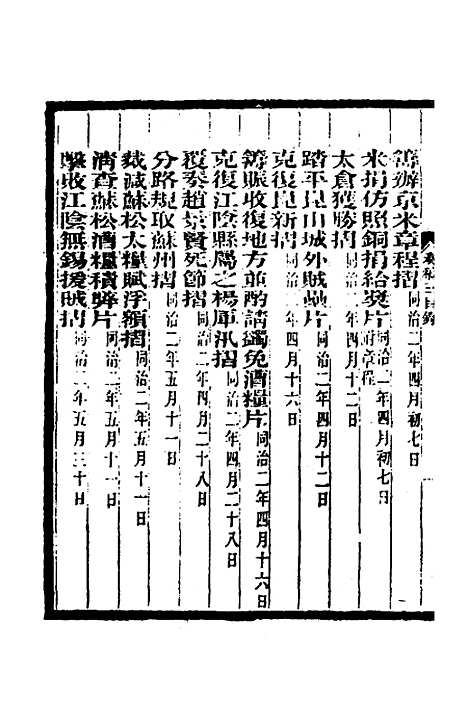 籌辦京米章程摺同治二年四月初七日
米捐仿照銅捐給獎片附章程同治二年四月初七日
太倉獲勝摺同治二年四月十二日
踏平昆山城外賊壘片同治二年四月十二日
克復昆新摺同治二年四月十六日
籌賑收復地方並酌請蠲免漕糧片同治二年四月十六日
克復江陰縣屬之楊厙汛摺同治二年四月二十八日
覆奏趙景賢死節摺同治二年四月二十八日
分路規取蘇州摺同治二年五月十一日
裁減蘇松太糧賦浮額摺同治二年五月十一日
清查蘇松漕糧積弊片同治二年五月十一日
收江陰無錫援賊摺同治二年五月三十日
奏稿三目錄